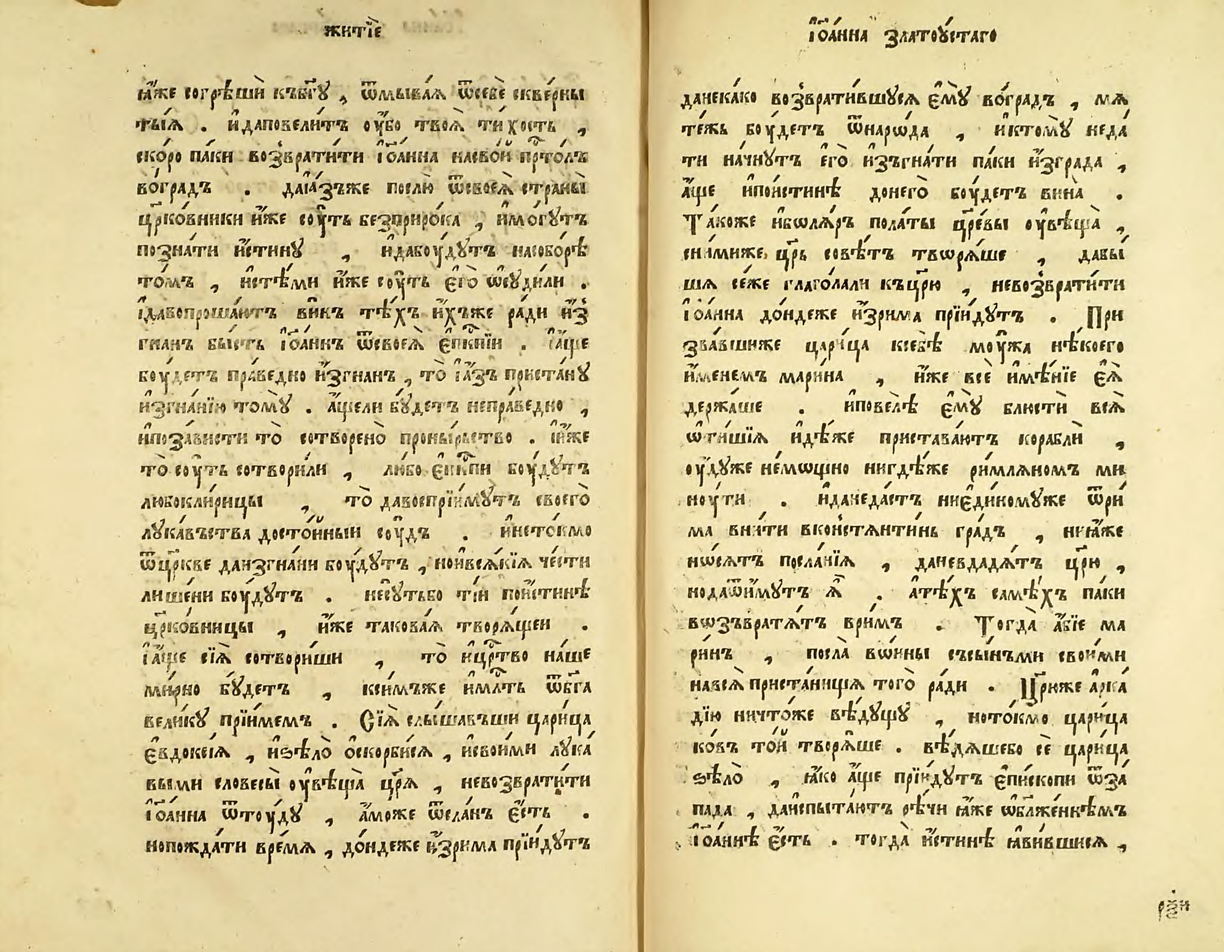 житїе
ꙗ҆́же согрѣшѝ къбг҃ꙋ , ѿмыва́ѧ ѿсебѐ скве́рны
ты́ѧ . и҆даповели́тъ оу҆́бо твоѧ̀ ти́хость ,
ско́ро па́ки возврати́ти і҆ѡа́нна насво́й прⷭ҇то́лъ
во́градъ . даі҆а́зъже послю̀ ѿсвоеѧ̀ страны̀
цр҃ко́вники и҆́же соу́ть безприро́ка , и҆мо́гꙋтъ
позна́ти и҆́стинꙋ , и҆дабоу́дꙋтъ насобо́рѣ
то́мъ , и҆стѣ́ми и҆́же соу́ть є҆го̀ ѡ҆сꙋди́ли .
і҆давопроша́ютъ ви́нъ тѣ́хъ и҆́хъже ра́ди и҆з
гнанъ бы́сть і҆ѡа́ннъ ѿсвоеѧ̀ є҆пⷭ҇кпїи . і҆а҆́ще
боу́детъ пра́ведно и҆́згнанъ , то̀ і҆а҆́зъ приста́нꙋ
и҆згна́нїю томꙋ̀ . а҆́щели бꙋ́детъ непра́ведно ,
и҆поза́висти то̀ сотворено̀ проны́рьство . и҆и҆́же
то̀ соу́ть сотвори́ли , лю́бо є҆пⷭ҇кпи боу́дꙋтъ
любокли́рицы , то̀ давоспрїи́мꙋтъ своего̀
лꙋка́вьства досто́йныи соу́дъ . и҆нето́кмо
ѿцр҃кве даи҆згна́ни боу́дꙋтъ , нои҆всѧ́кїѧ че́сти
лише́ни боу́дꙋтъ . несꙋ́тьбо ті́и пои҆́стинѣ
цр҃ко́вницы , и҆́же такова́ѧ творѧ́щеи .
і҆а҆́ще сїѧ̀ сотвори́ши , то̀ и҆црⷭ҇тво на́ше
ми́рно бꙋ́детъ , ксимъже и҆мл҃ть ѿбг҃а
вели́кꙋ прїи́мемъ . Сїѧ̀ слы́шавъши цари́ца
є҆ѵдоксі́ѧ , и҆ѕѣлѡ̀ ѡ҆скорби́сѧ , и҆свои́ми лꙋка́
выми словесы̀ оу҆вѣща̀ цр҃ѧ̀ , невозврати́ти
і҆ѡа́нна ѿтоу́дꙋ , а҆́може ѿсланъ є҆́сть .
нопожда́ти вре́мѧ , до́ндеже и҆́зрима прїи́дꙋтъ
і҆ѡа́нна златоꙋ́стаго
данека́ко возврати́вшꙋсѧ є҆мꙋ̀ во́градъ , мѧ
те́жь боу́детъ ѿнаро́да , и҆ктомꙋ̀ неда
ти начнꙋ́тъ є҆го̀ и҆зъгна́ти па́ки и҆́зграда ,
а҆́ще и҆пои҆́стинѣ донего̀ боу́детъ вина̀ .
Та́коже и҆боѧ́ръ пола́ты цр҃е́вы оу҆вѣща̀ ,
сни́миже цр҃ь совѣ́тъ творѧ́ше , дабы́
шѧ се́же глаго́лали къцр҃ю , невозврати́ти
і҆ѡа́нна до́ндеже и҆́зрима прїи́дꙋтъ . При
зва́вшиже цари́ца ксебѣ̀ мо́ужа нѣ́коего
и҆́менемъ мари́на , и҆́же всѐ и҆мѣ́нїе є҆ѧ̀
держа́ше . и҆повелѣ̀ є҆мꙋ̀ блюстѝ всѧ̀
ѡ҆ти́шїѧ и҆дѣ́же пристава́ютъ корабли̑ ,
оу҆дꙋ́же не́мощно нигдѣ́же ри́млѧномъ ми
ноу́ти . и҆данеда́стъ ниеди́номꙋже ѿри́
ма вни́ти вконстѧнти́нь гра́дъ , ниꙗ҆́же
но́сѧтъ посла́нїѧ , даневдадѧ́тъ цр҃ю ,
нода҆ѿи́мꙋтъ ѧ҆̀ . а҆тѣ́хъ самѣ́хъ па́ки
вѡзъвратѧ́тъ вримъ . Тогда̀ а҆́бїе ма
ринъ , посла̀ во́ины съсынъми свои́ми
навсѧ̀ приста́нищѧ того̀ ра́ди . Цр҃и́же а҆рка́
дїю ничто́же вѣ́дꙋщꙋ , ното́кмо цари́ца
ко́въ то́й творѧ́ше . вѣ́дѧшебо сѐ цари́ца
ѕѣлѡ̀ , ꙗ҆́ко а҆́ще прїи́дꙋтъ є҆пи́скопи ѿза́
пада , даи҆спыта́ютъ рѣ́чи ꙗ҆́же ѡ҆бл҃же́ннѣмъ
і҆ѡа́ннѣ є҆́сть . тогда̀ и҆́стинѣ ꙗ҆ви́вшисѧ ,
рѯи